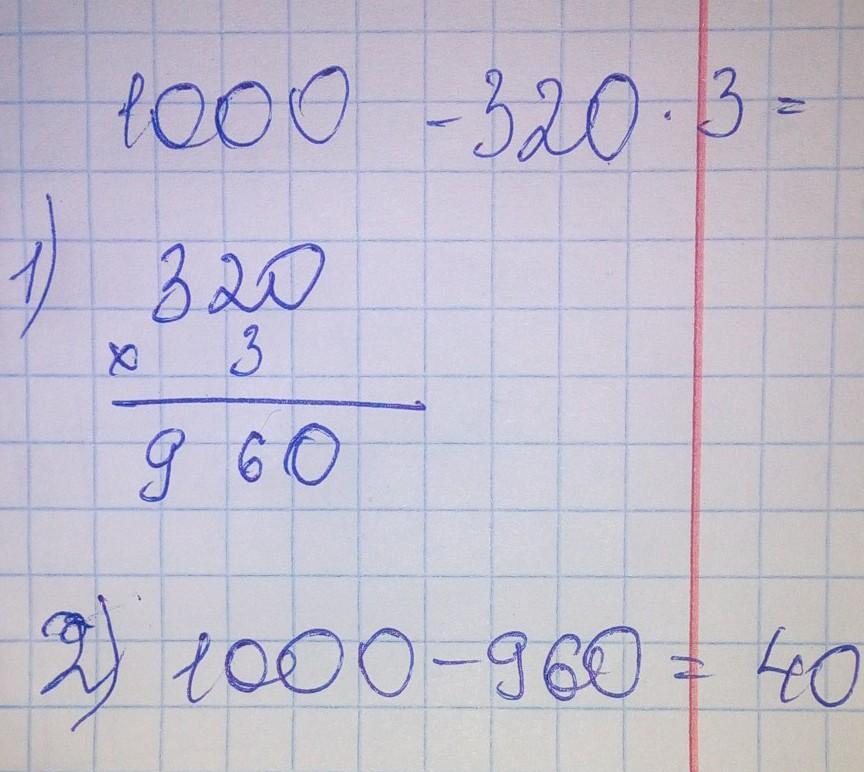 1000 - 320 · 3 =
1) 320
× 3
960
2) 1000 - 960 = 40